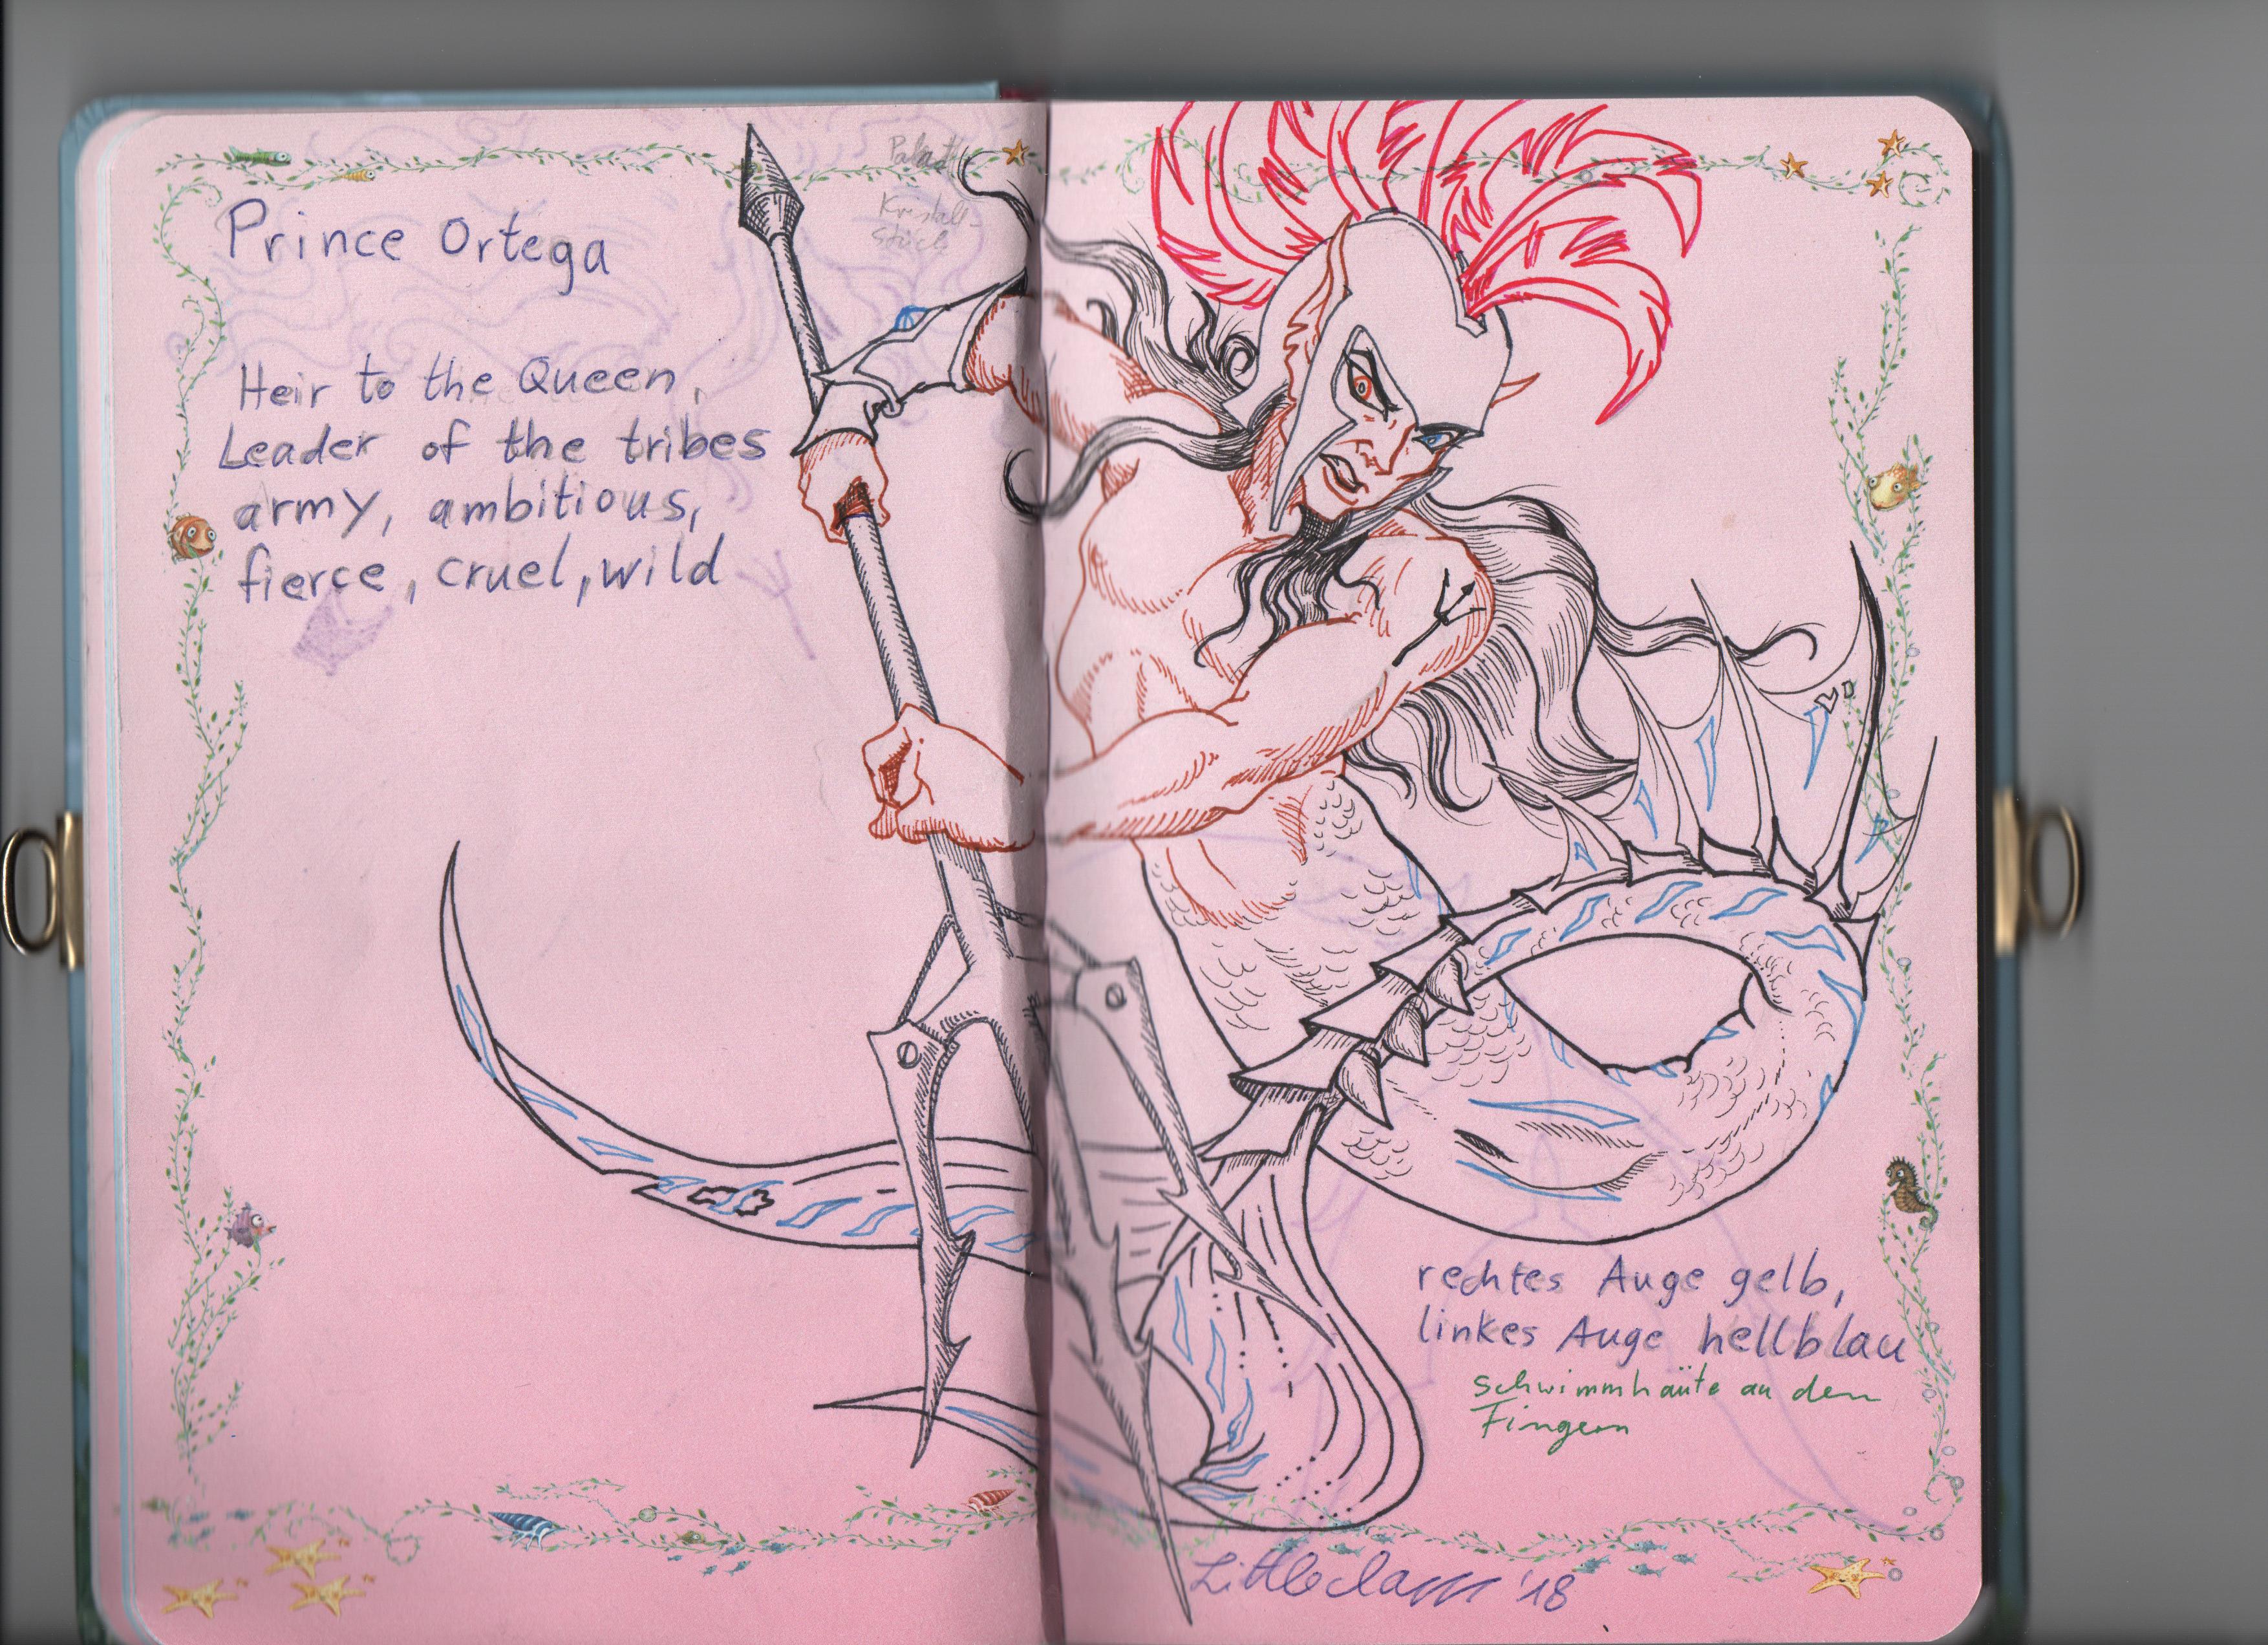 Prince Ortega
Heir to the Queen,
Leader of the tribes
army, ambitious,
fierce, cruel, wild
Kristall-
stück
rechtes Auge gelb,
linkes Auge hellblau
Schwimmhäute an den
Fingern
'18